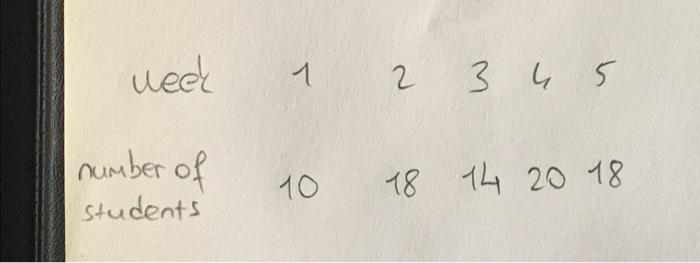 week 1 2 3 4 5
number of
students 10 18 14 20 18